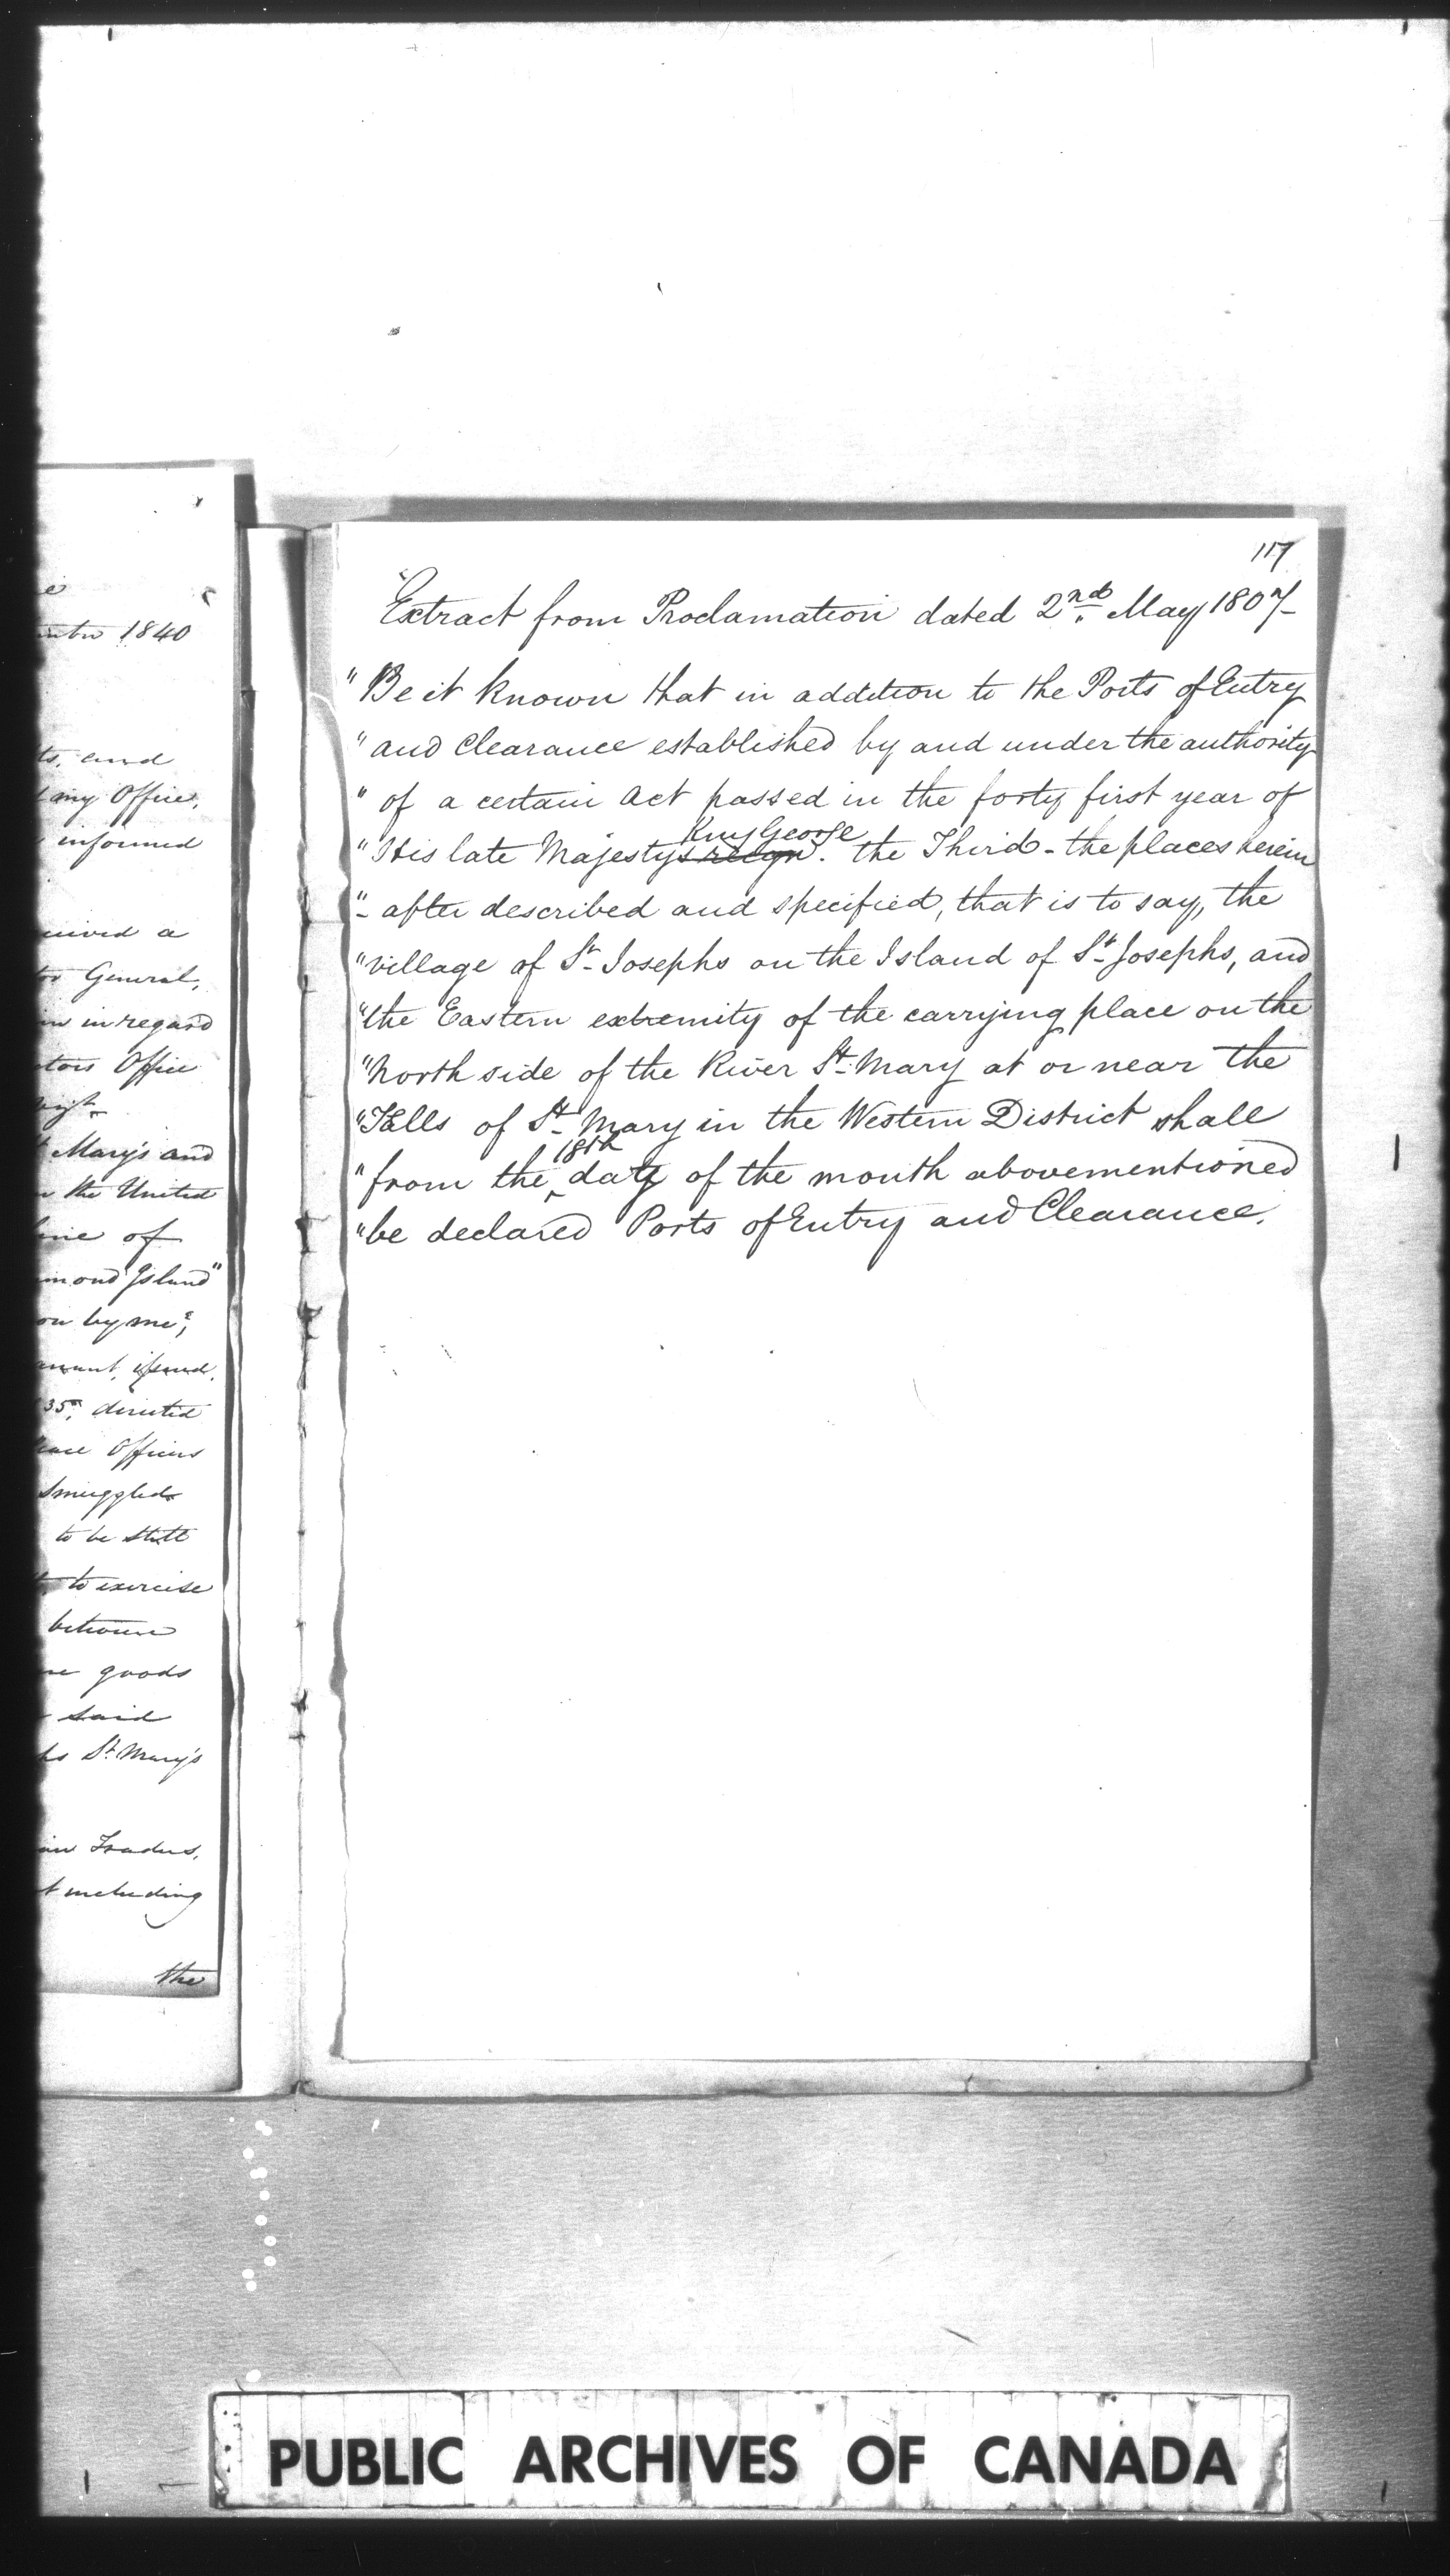 ts, and
my Office,
informed
a
General,
in regard
Office
Mary's and
the United
of
Island"
by me;
issued,
35, directed
Officers
Smuggled
to be still
to exercise
between
goods
said
St Mary's
Traders,
including
the
1840
117
"Extract from Proclamation dated 2nd May 1807-
"Be it known that in addition to the Ports of Entry
"and Clearance established by and under the authority
"of a certain Act passed in the forty first year of
King George
"His late Majestys reign. the Third - the places herein
"- after described and specified, that is to say, the
"village of St Josephs on the Island of St Josephs, and
"the Eastern extremity of the carrying place on the
"North side of the River St Mary at or near the
"Falls of St Mary in the Western District shall
18th
"from the day of the month abovementioned
"be declared Ports of Entry and Clearance.
PUBLIC ARCHIVES OF CANADA